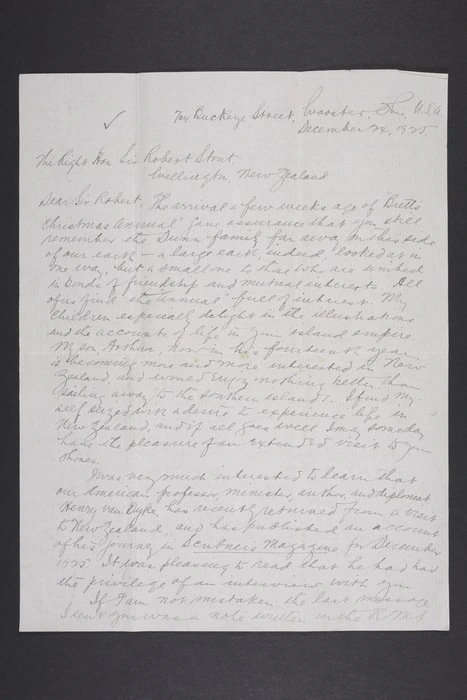 704 Buckeye Street, Wooster, Ohio, U.S.A.
December 24, 1925
The Right Hon Sir Robert Stout
Wellington, New Zealand
Dear Sir Robert, The arrival a few weeks ago of "Brett's
Christmas Annual" gave assurance that you still
remember the Dunn family far away on this side
of our earth – a large earth, indeed, looked at in
one way, but a small one to those who are united
in bonds of friendship and mutual interests. All
of us find the annual full of interest. My
children especially delight in the illustrations
and the accounts of life in your island empire.
My son, Arthur, now in his fourteenth year,
is becoming more and more interested in New
Zealand, and would enjoy nothing better than
sailing away to the southern islands. I find my-
self seized with a desire to experience life in
New Zealand, and if all goes well I may someday
have the pleasure of an extended visit to your
shores.
I was very much interested to learn that
our American professor, minister, author, and diplomat
Henry van Dyke, has recently returned from a visit
to New Zealand, and has published an account
of his journey in Scribners Magazine for December
1925. It was pleasing to read that he had had
the privilege of an interview with you
If I am not mistaken the last message
I sent you was a note written on the R.M.S.